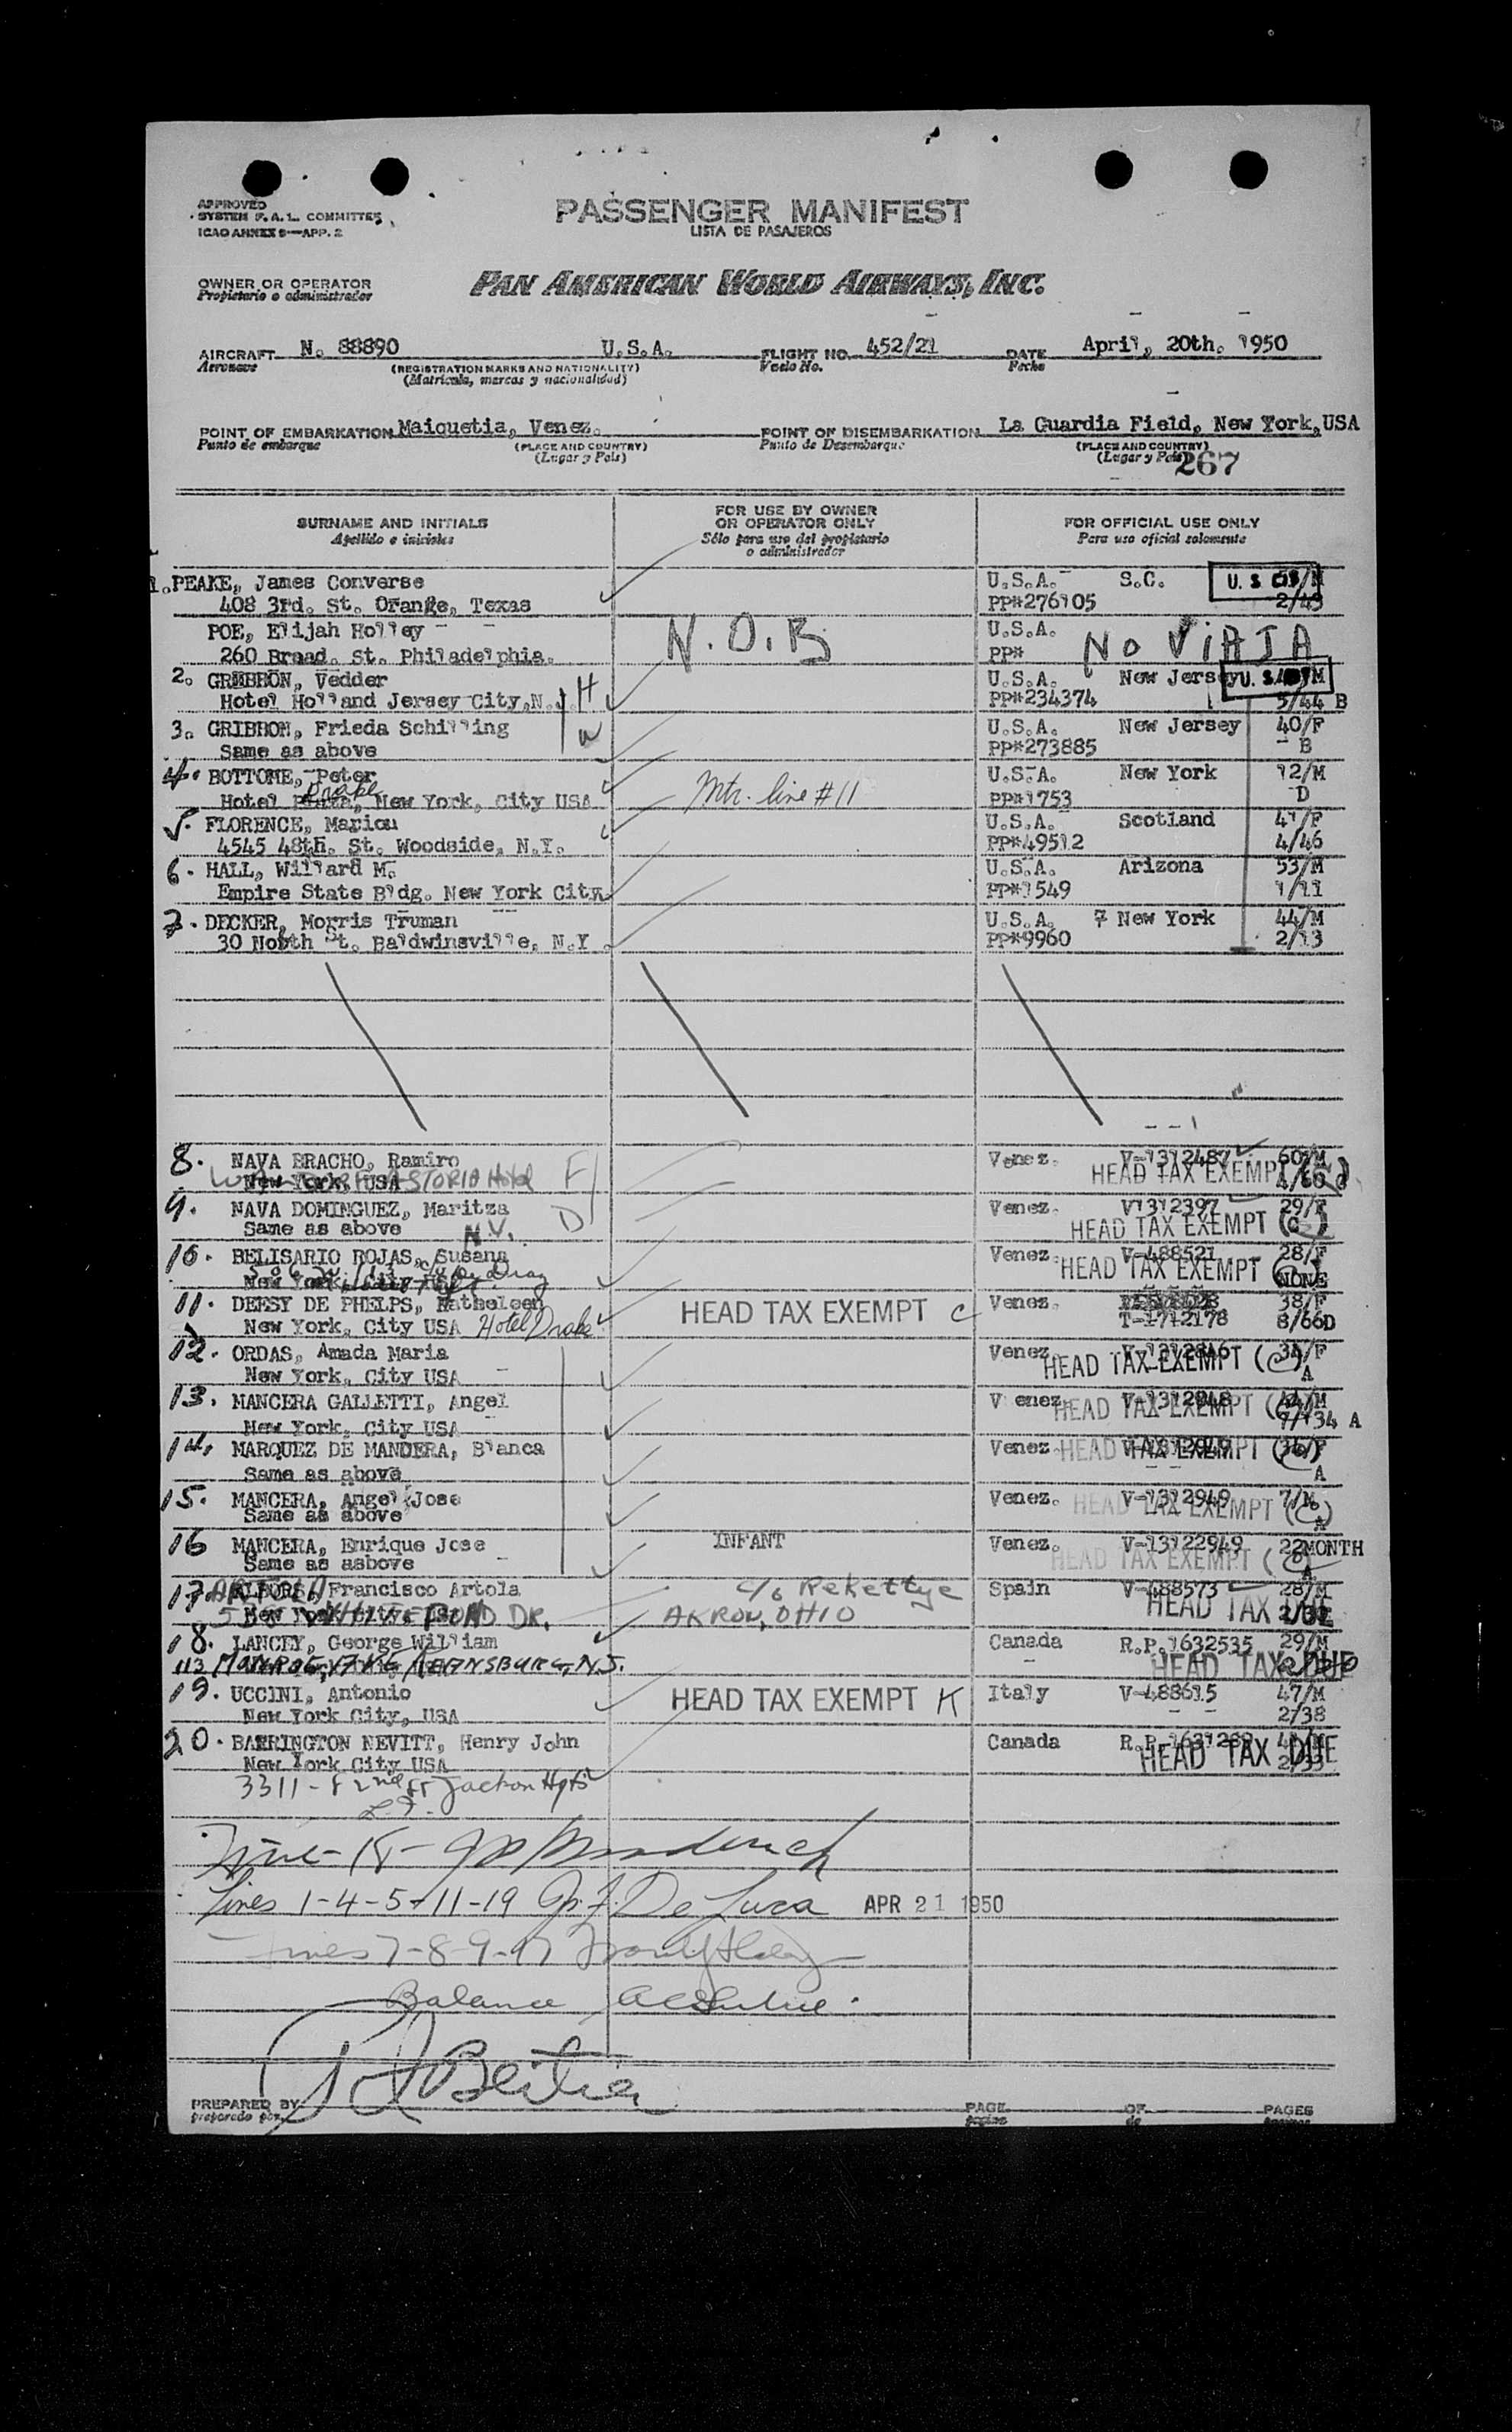 APPROVED
SYSTEM F.A.L. COMMITTEE
ICAO ANNEX 9—APP. 2
PASSENGER MANIFEST
LISTA DE PASAJEROS
OWNER OR OPERATOR
Propietario o administrador
PAN AMERICAN WORLD AIRWAYS, INC.
AIRCRAFT N. 88890 U.S.A. FLIGHT NO. 452/21 DATE April, 20th. 1950
Aeronave (REGISTRATION MARKS AND NATIONALITY) Vuelo No. Fecha
(Matricula, marcas y nacionalidad)
POINT OF EMBARKATION Maiquetia, Venez. POINT OF DISEMBARKATION La Guardia Field, New York, USA
Punto de embarque (PLACE AND COUNTRY) Punto de Desembarque (PLACE AND COUNTRY)
(Lugar y Pais) (Lugar y Pais)
267
SURNAME AND INITIALS FOR USE BY OWNER OR OPERATOR ONLY FOR OFFICIAL USE ONLY
Apellido e iniciales Sólo para uso del propietario o administrador Para uso oficial solamente
1. PEAKE, James Converse U.S.A. S.C. U. S.
408 3rd. St. Orange, Texas PP#276105 2/43
POE, Elijah Holley N.O.B U.S.A. NO ViAJA
260 Broad. St. Philadelphia. PP#
2. GRIBBON, Vedder H U.S.A. New Jersey U. S.
Hotel Holland Jersey City, N.J. PP#234374 5/44 B
3. GRIBBON, Frieda Schilling W U.S.A. New Jersey 40/F
Same as above PP#273885 B
4. BOTTOME, Peter U.S.A. New York 12/M
Hotel Drake, New York, City USA Mtr. line #11 PP#1753 D
5. FLORENCE, Mariou U.S.A. Scotland 41/F
4545 48th. St. Woodside, N.Y. PP#49512 4/46
6. HALL, Willard M. U.S.A. Arizona 53/M
Empire State Bldg. New York City PP#1549 1/11
7. DECKER, Morris Truman U.S.A. 7 New York 44/M
30 Nobth St. Baldwinsville, N.Y. PP#9960 2/13
8. NAVA BRACHO, Ramiro F Venez. V-1312487 60/M
New York, USA ASTORIA Hotel HEAD TAX EXEMPT
9. NAVA DOMINGUEZ, Maritza D Venez. V1312397 29/F
Same as above N.Y. HEAD TAX EXEMPT (C)
10. BELISARIO ROJAS, Susana Venez. V-488521 28/F
New York, City HEAD TAX EXEMPT NONE
11. DEESY DE PHELPS, Katheleen HEAD TAX EXEMPT C Venez. 38/F
New York, City USA Hotel Drake T-1712178 8/66D
12. ORDAS, Amada Maria Venez. V-1312846 34/F
New York, City USA HEAD TAX EXEMPT (C) A
13. MANCERA GALLETTI, Angel Venez. V-1312948 44/M
New York, City USA HEAD TAX EXEMPT A
14. MARQUEZ DE MANDERA, Blanca Venez. HEAD TAX EXEMPT
Same as above A
15. MANCERA, Angel Jose Venez. V-1312949 7/M
Same as above HEAD TAX EXEMPT (C)
16 MANCERA, Enrique Jose INFANT Venez. V-13122949 22MONTH
Same as asbove HEAD TAX EXEMPT
17. ARTOLA Francisco Artola c/o Rekettye Spain V-488573 28/M
WHITE POND DR. AKRON, OHIO HEAD TAX
18. LANCEY, George William Canada R.P. 1632535 29/M
113 MONROE AVE KEANSBURG, N.J. HEAD TAX DUE
19. UCCINI, Antonio HEAD TAX EXEMPT K Italy V-488615 47/M
New York City, USA 2/38
20. BARRINGTON NEVITT, Henry John Canada R.P.
New York City USA HEAD TAX DUE
3311-82nd St Jackson Hgts
L.I.
Lines 1-4-5-11-19 De Luca APR 21 1950
Lines 7-8-9-17
Balance
PREPARED BY PAGE OF PAGES
preparado por